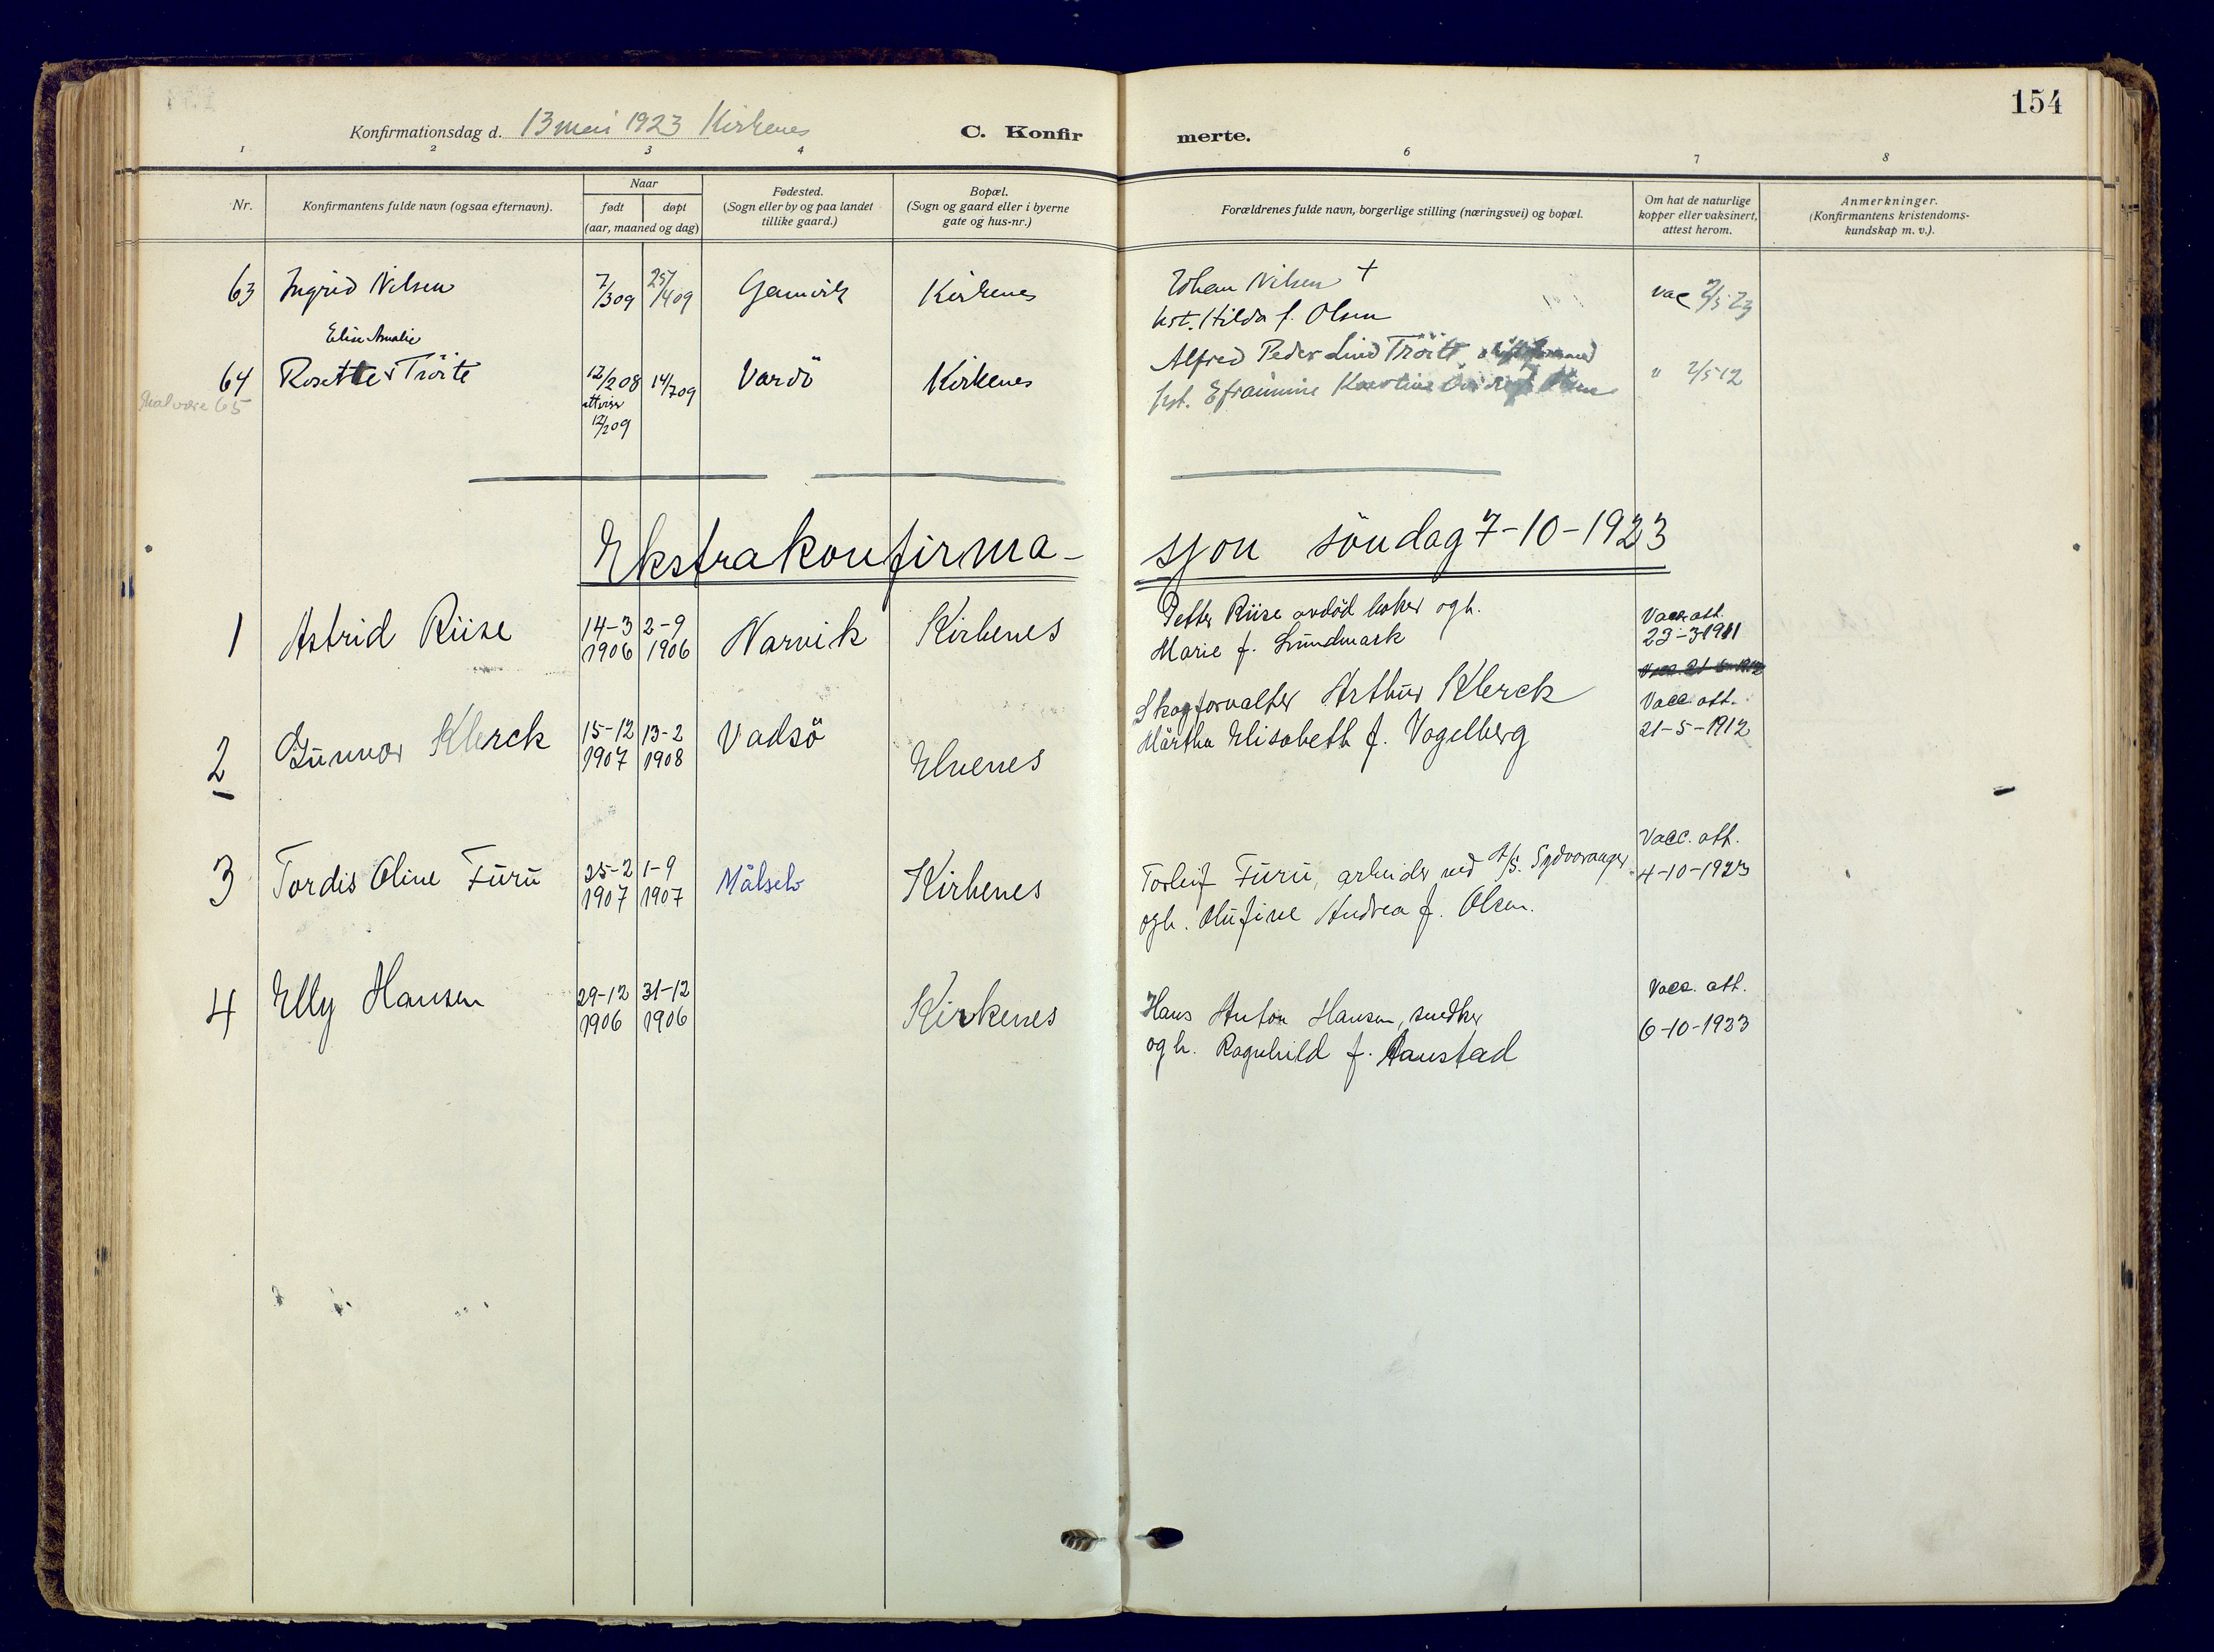 154
Konfirmationsdag d. 13 mai 1923 Kirkenes
C. Konfirmerte.
1 2 3 4 6 7 8
Nr.
Konfirmantens fulde navn (ogsaa efternavn).
Naar
født døpt
(aar, maaned og dag)
Fødested.
(Sogn eller by og paa landet
tillike gaard.)
Bopæl.
(Sogn og gaard eller i byerne
gate og hus-nr.)
Forældrenes fulde navn, borgerlige stilling (næringsvei) og bopæl.
Om hat de naturlige
kopper eller vaksinert,
attest herom.
Anmerkninger.
(Konfirmantens kristendoms-
kundskap m. v.).
63 Ingrid Nilsen 7/3 09 25/4 09 Gamvik Kirkenes
Johan Nilsen +
hst. Hilda f. Olsen
vac 2/5 23
Elise Amalie
64 Rosette Tröite 12/2 08 14/7 09 Vardö Kirkenes
skal være 65
attviser
12/2 09
Alfred Peder Lind Tröite
hst. Eframine
" 2/5 12
Ekstrakonfirma-
sjon söndag 7-10-1923
1 Astrid Riise 14-3 1906 2-9 1906 Narvik Kirkenes
Petter Riise avdöd baker og h.
Marie f. Lundmark
Vacc. att.
23-3-1911
2 Gunvor Klerck 15-12 1907 13-2 1908 Vadsö Elvenes
Skogforvalter Arthur Klerck
Märtha Elisabeth f. Vogelberg
Vacc. att.
21-5-1912
3 Tordis Oline Furu 25-2 1907 1-9 1907 Målselv Kirkenes
Torleif Furu, arbeider ved A/S. Sydvaranger
og h. Olufine Andrea f. Olsen.
Vacc. att.
4-10-1923
4 Elly Hansen 29-12 1906 31-12 1906 Kirkenes
Hans Anton Hansen, snedker
og h. Ragnhild f. Aanstad
Vacc. att.
6-10-1923